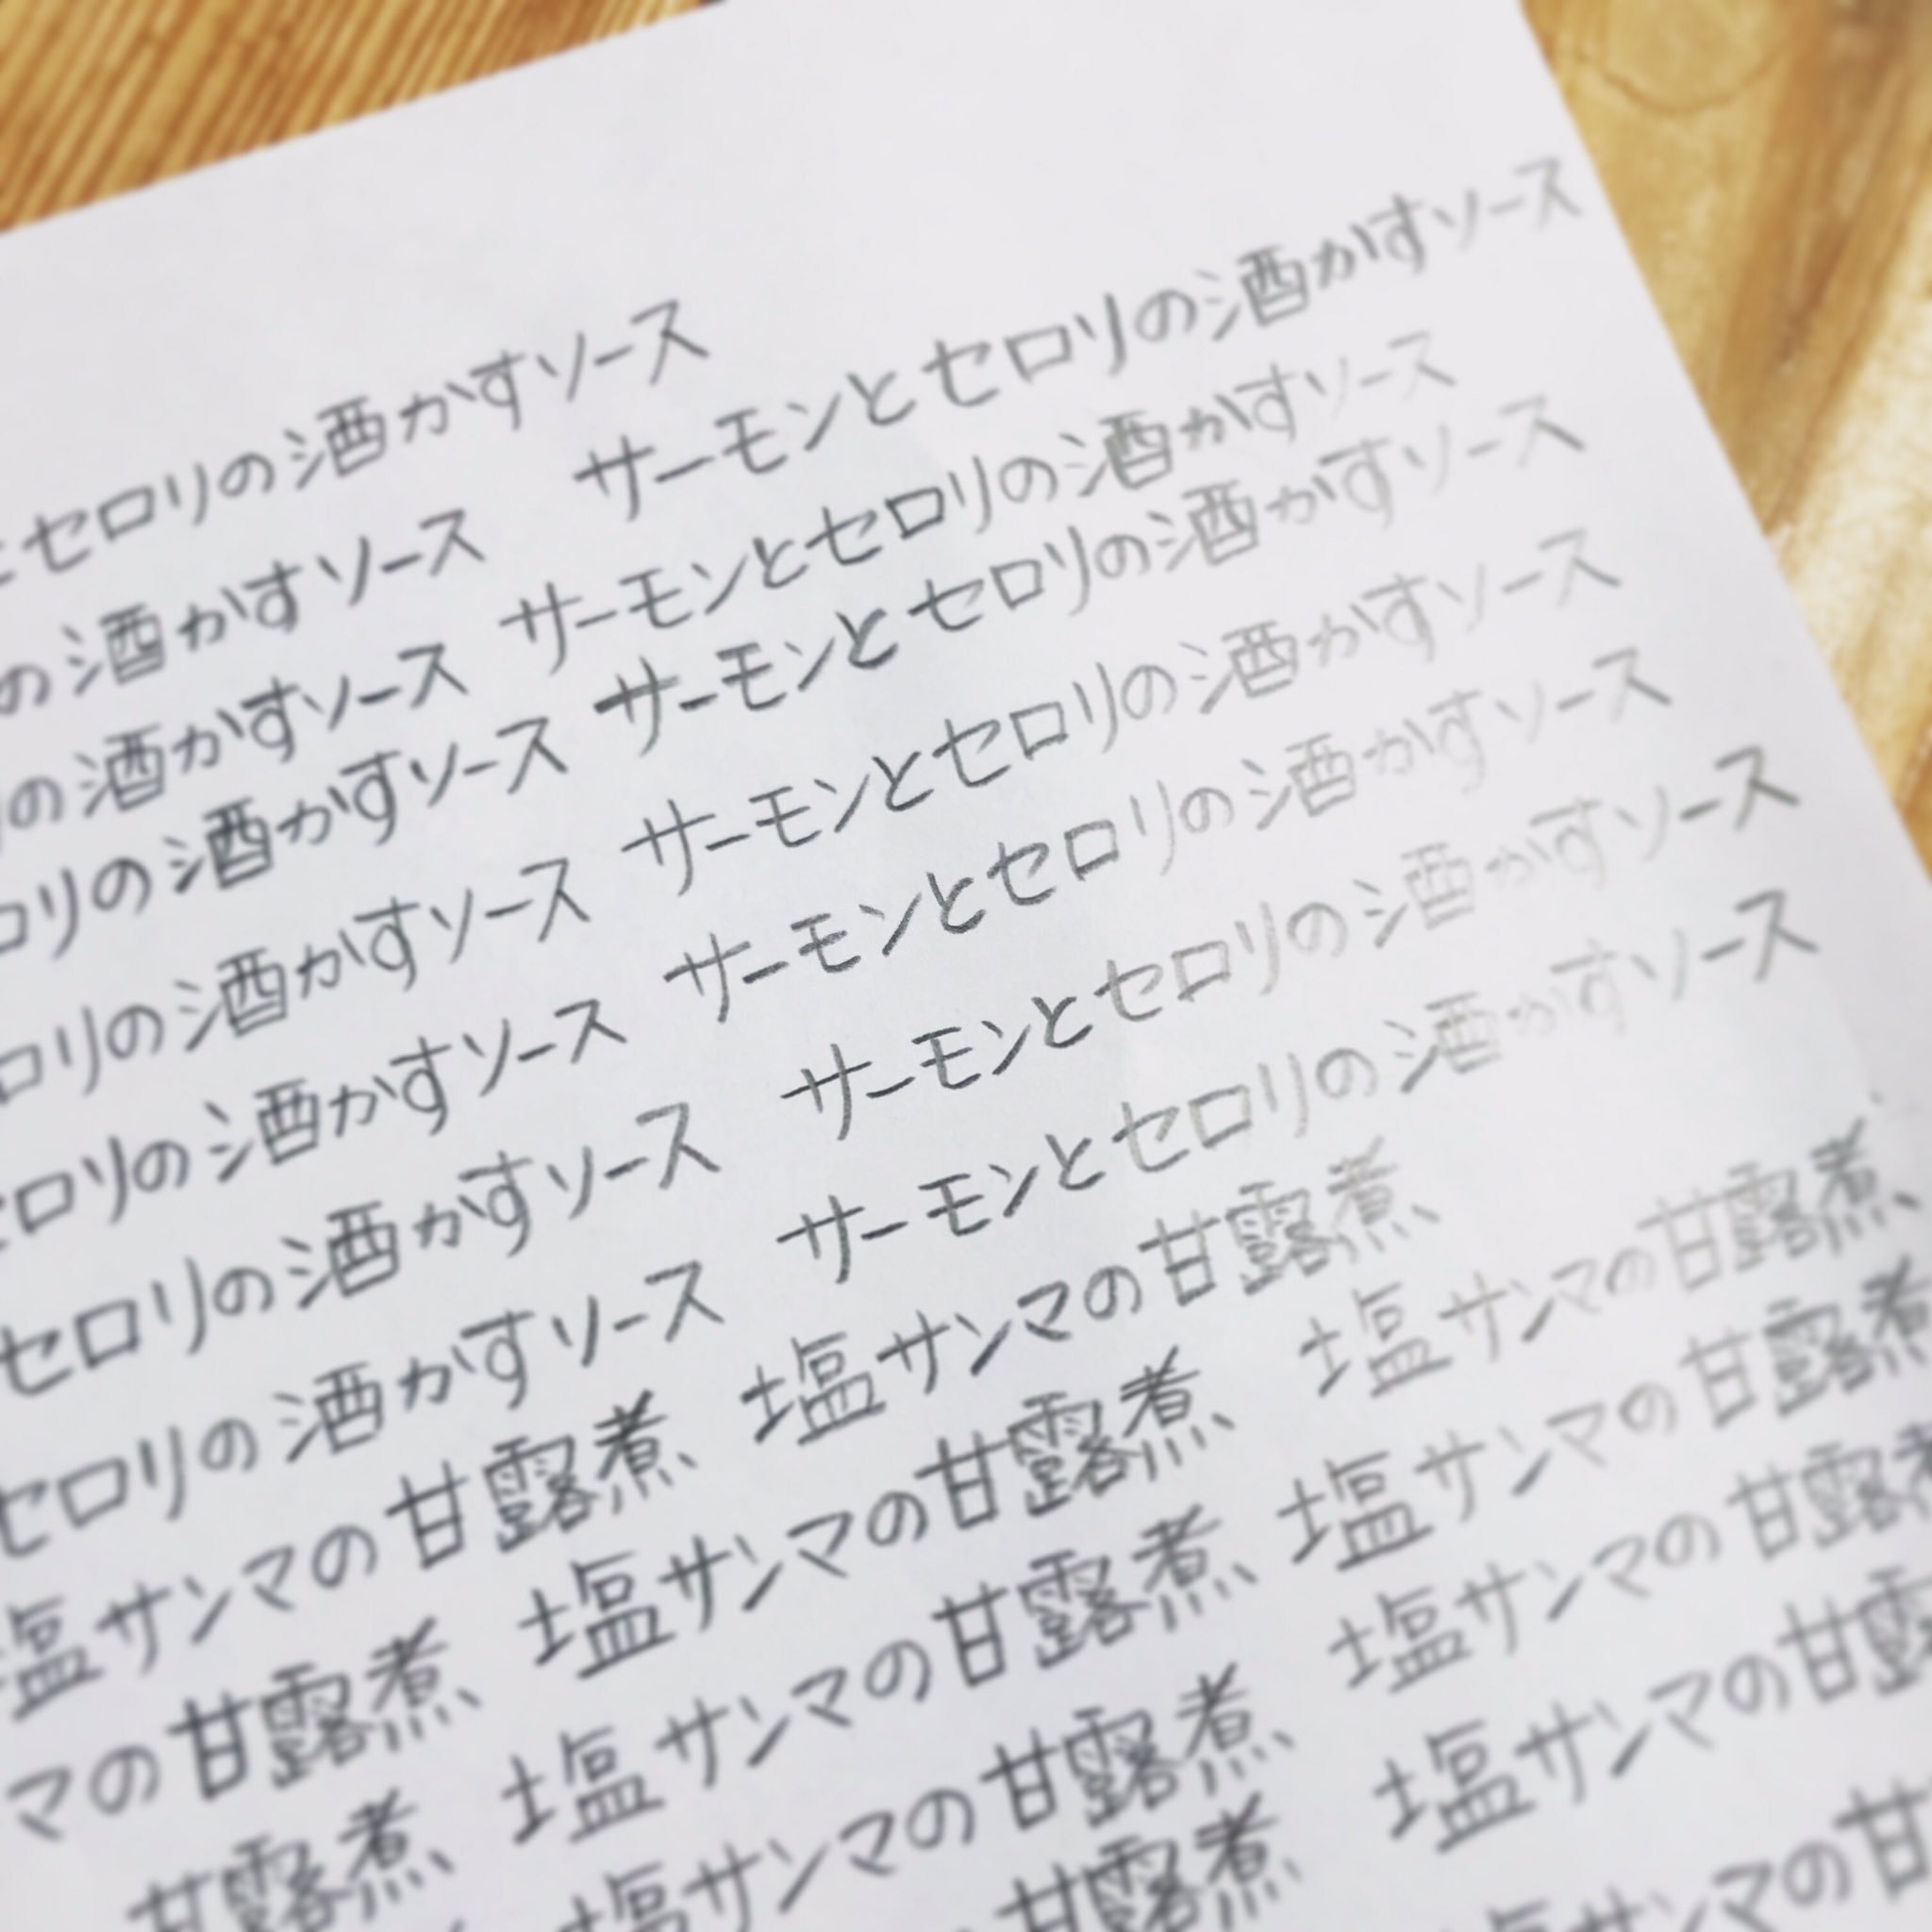 とセロリの酒かすソース
の酒かすソース　サーモンとセロリの酒かすソース
の酒かすソース　サーモンとセロリの酒かすソース
ロリの酒かすソース　サーモンとセロリの酒かすソース
ロリの酒かすソース　サーモンとセロリの酒かすソース
セロリの酒かすソース　サーモンとセロリの酒かすソース
セロリの酒かすソース　サーモンとセロリの酒かすソース
セロリの酒かすソース　サーモンとセロリの酒かすソース
塩サンマの甘露煮、塩サンマの甘露煮、
マの甘露煮、塩サンマの甘露煮、塩サンマの甘露煮、
甘露煮、塩サンマの甘露煮、塩サンマの甘露煮
塩サンマの甘露煮、塩サンマの甘露煮
甘露煮　塩サンマの甘露
サンマの甘